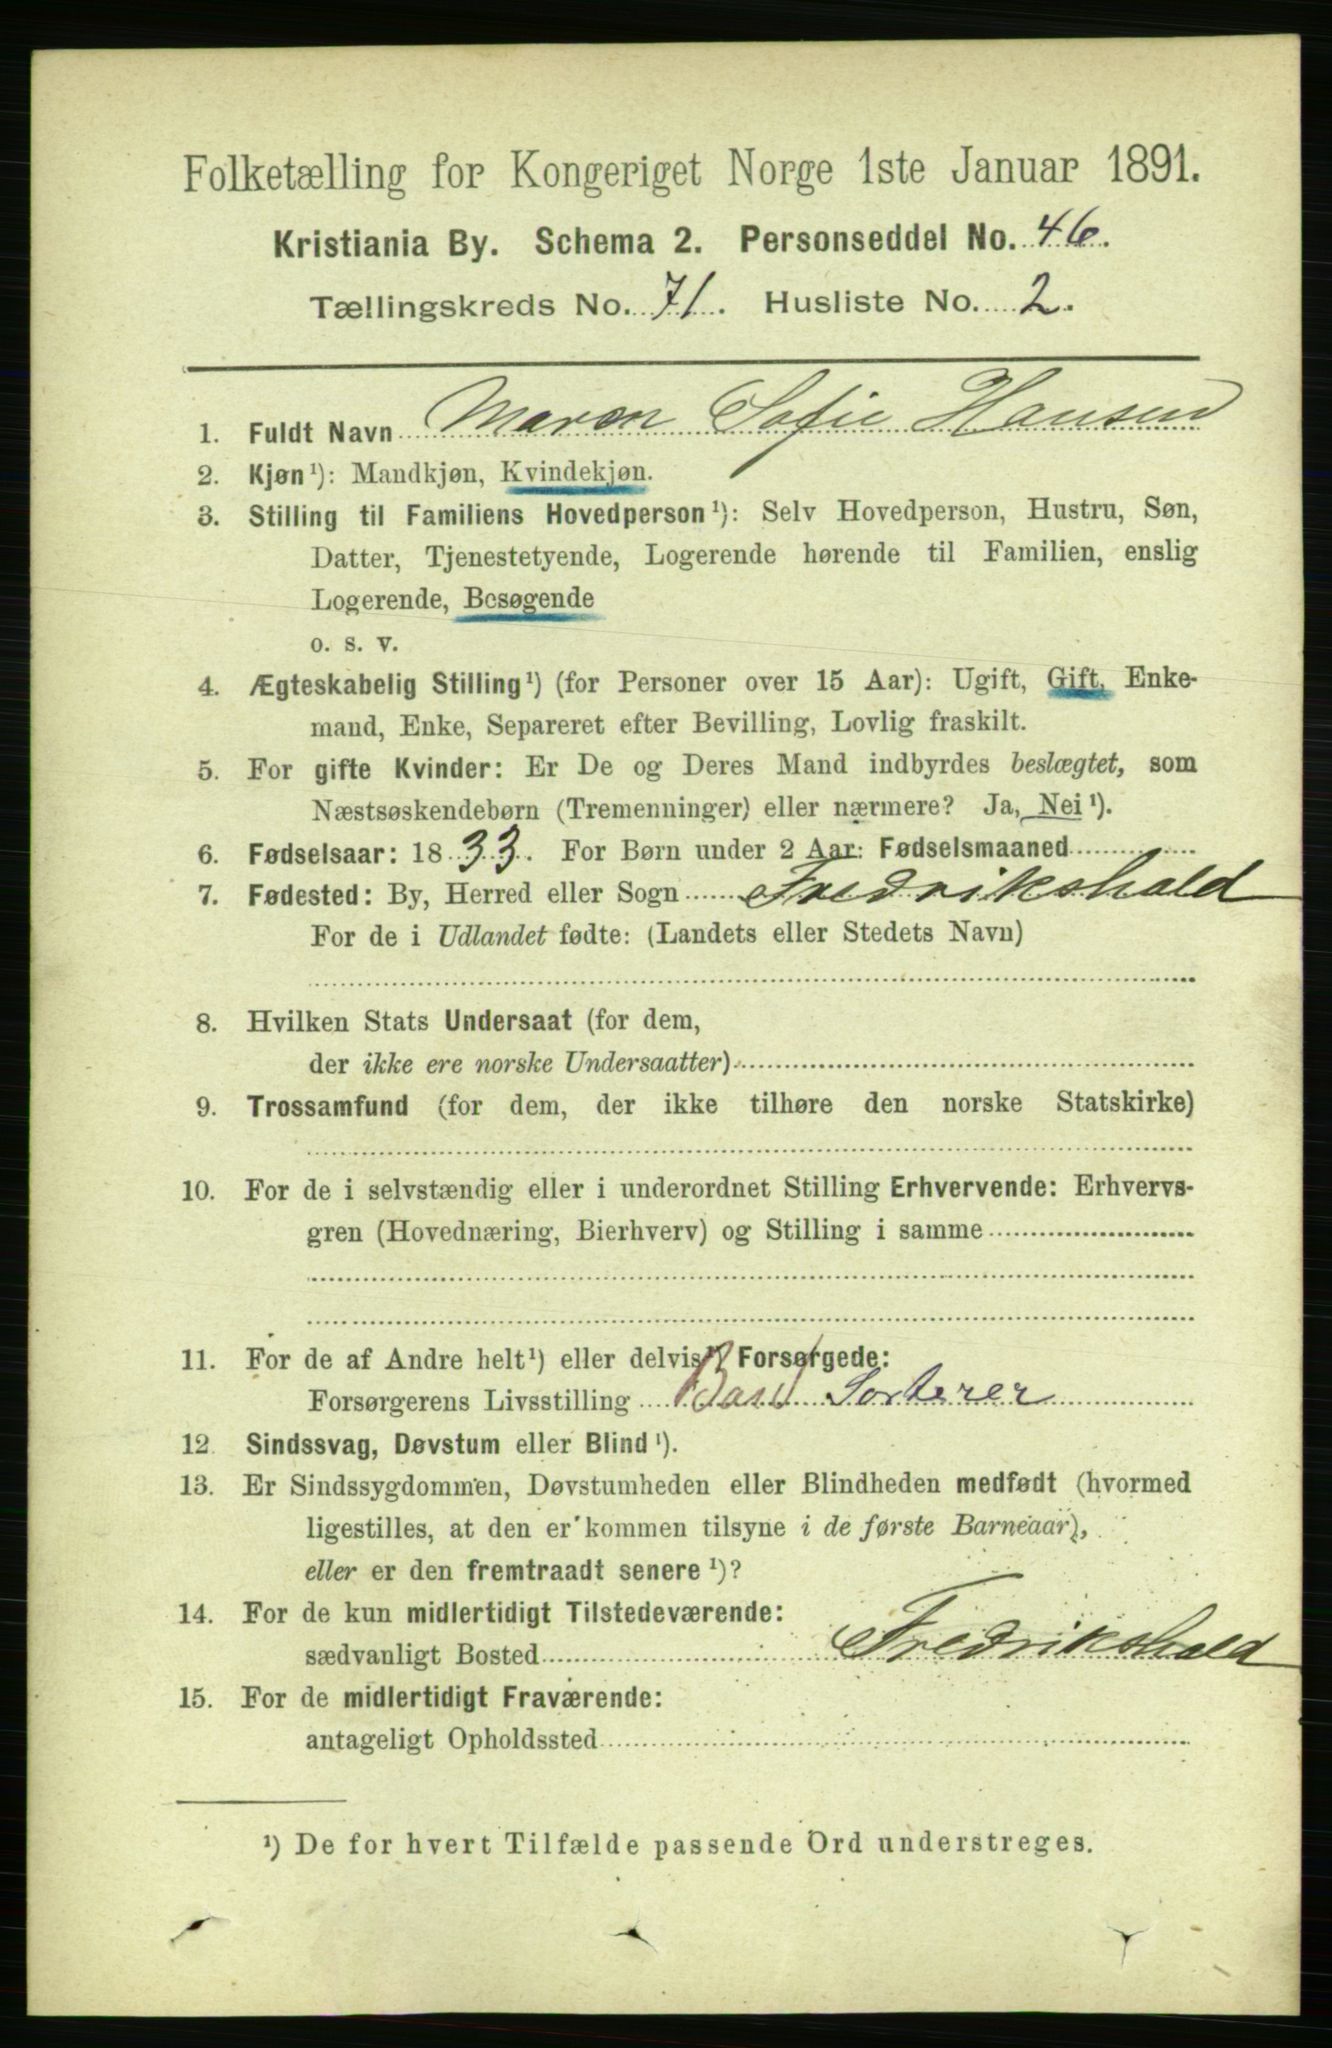 Folketælling for Kongeriget Norge 1ste Januar 1891.
Kristiania By. Schema 2. Personseddel No. 46.
Tællingskreds No. 71. Husliste No. 2.
1. Fuldt Navn Maren Sofie Hansen
2. Kjøn¹): Mandkjøn, Kvindekjøn.
3. Stilling til Familiens Hovedperson¹): Selv Hovedperson, Hustru, Søn,
Datter, Tjenestetyende, Logerende hørende til Familien, enslig
Logerende, Besøgende
o. s. v.
4. Ægteskabelig Stilling¹) (for Personer over 15 Aar): Ugift, Gift, Enke-
mand, Enke, Separeret efter Bevilling, Lovlig fraskilt.
5. For gifte Kvinder: Er De og Deres Mand indbyrdes beslægtet, som
Næstsøskendebørn (Tremenninger) eller nærmere? Ja, Nei¹).
6. Fødselsaar: 1833. For Børn under 2 Aar: Fødselsmaaned
7. Fødested: By, Herred eller Sogn Fredrikshald
For de i Udlandet fødte: (Landets eller Stedets Navn)
8. Hvilken Stats Undersaat (for dem,
der ikke ere norske Undersaatter)
9. Trossamfund (for dem, der ikke tilhøre den norske Statskirke)
10. For de i selvstændig eller i underordnet Stilling Erhvervende: Erhvervs-
gren (Hovednæring, Bierhverv) og Stilling i samme
11. For de af Andre helt¹) eller delvis¹) Forsørgede:
Forsørgerens Livsstilling Bord Sorterer
12. Sindssvag, Døvstum eller Blind¹).
13. Er Sindssygdommen, Døvstumheden eller Blindheden medfødt (hvormed
ligestilles, at den er kommen tilsyne i de første Barneaar),
eller er den fremtraadt senere¹)?
14. For de kun midlertidigt Tilstedeværende:
sædvanligt Bosted Fredrikshald
15. For de midlertidigt Fraværende:
antageligt Opholdssted
¹) De for hvert Tilfælde passende Ord understreges.